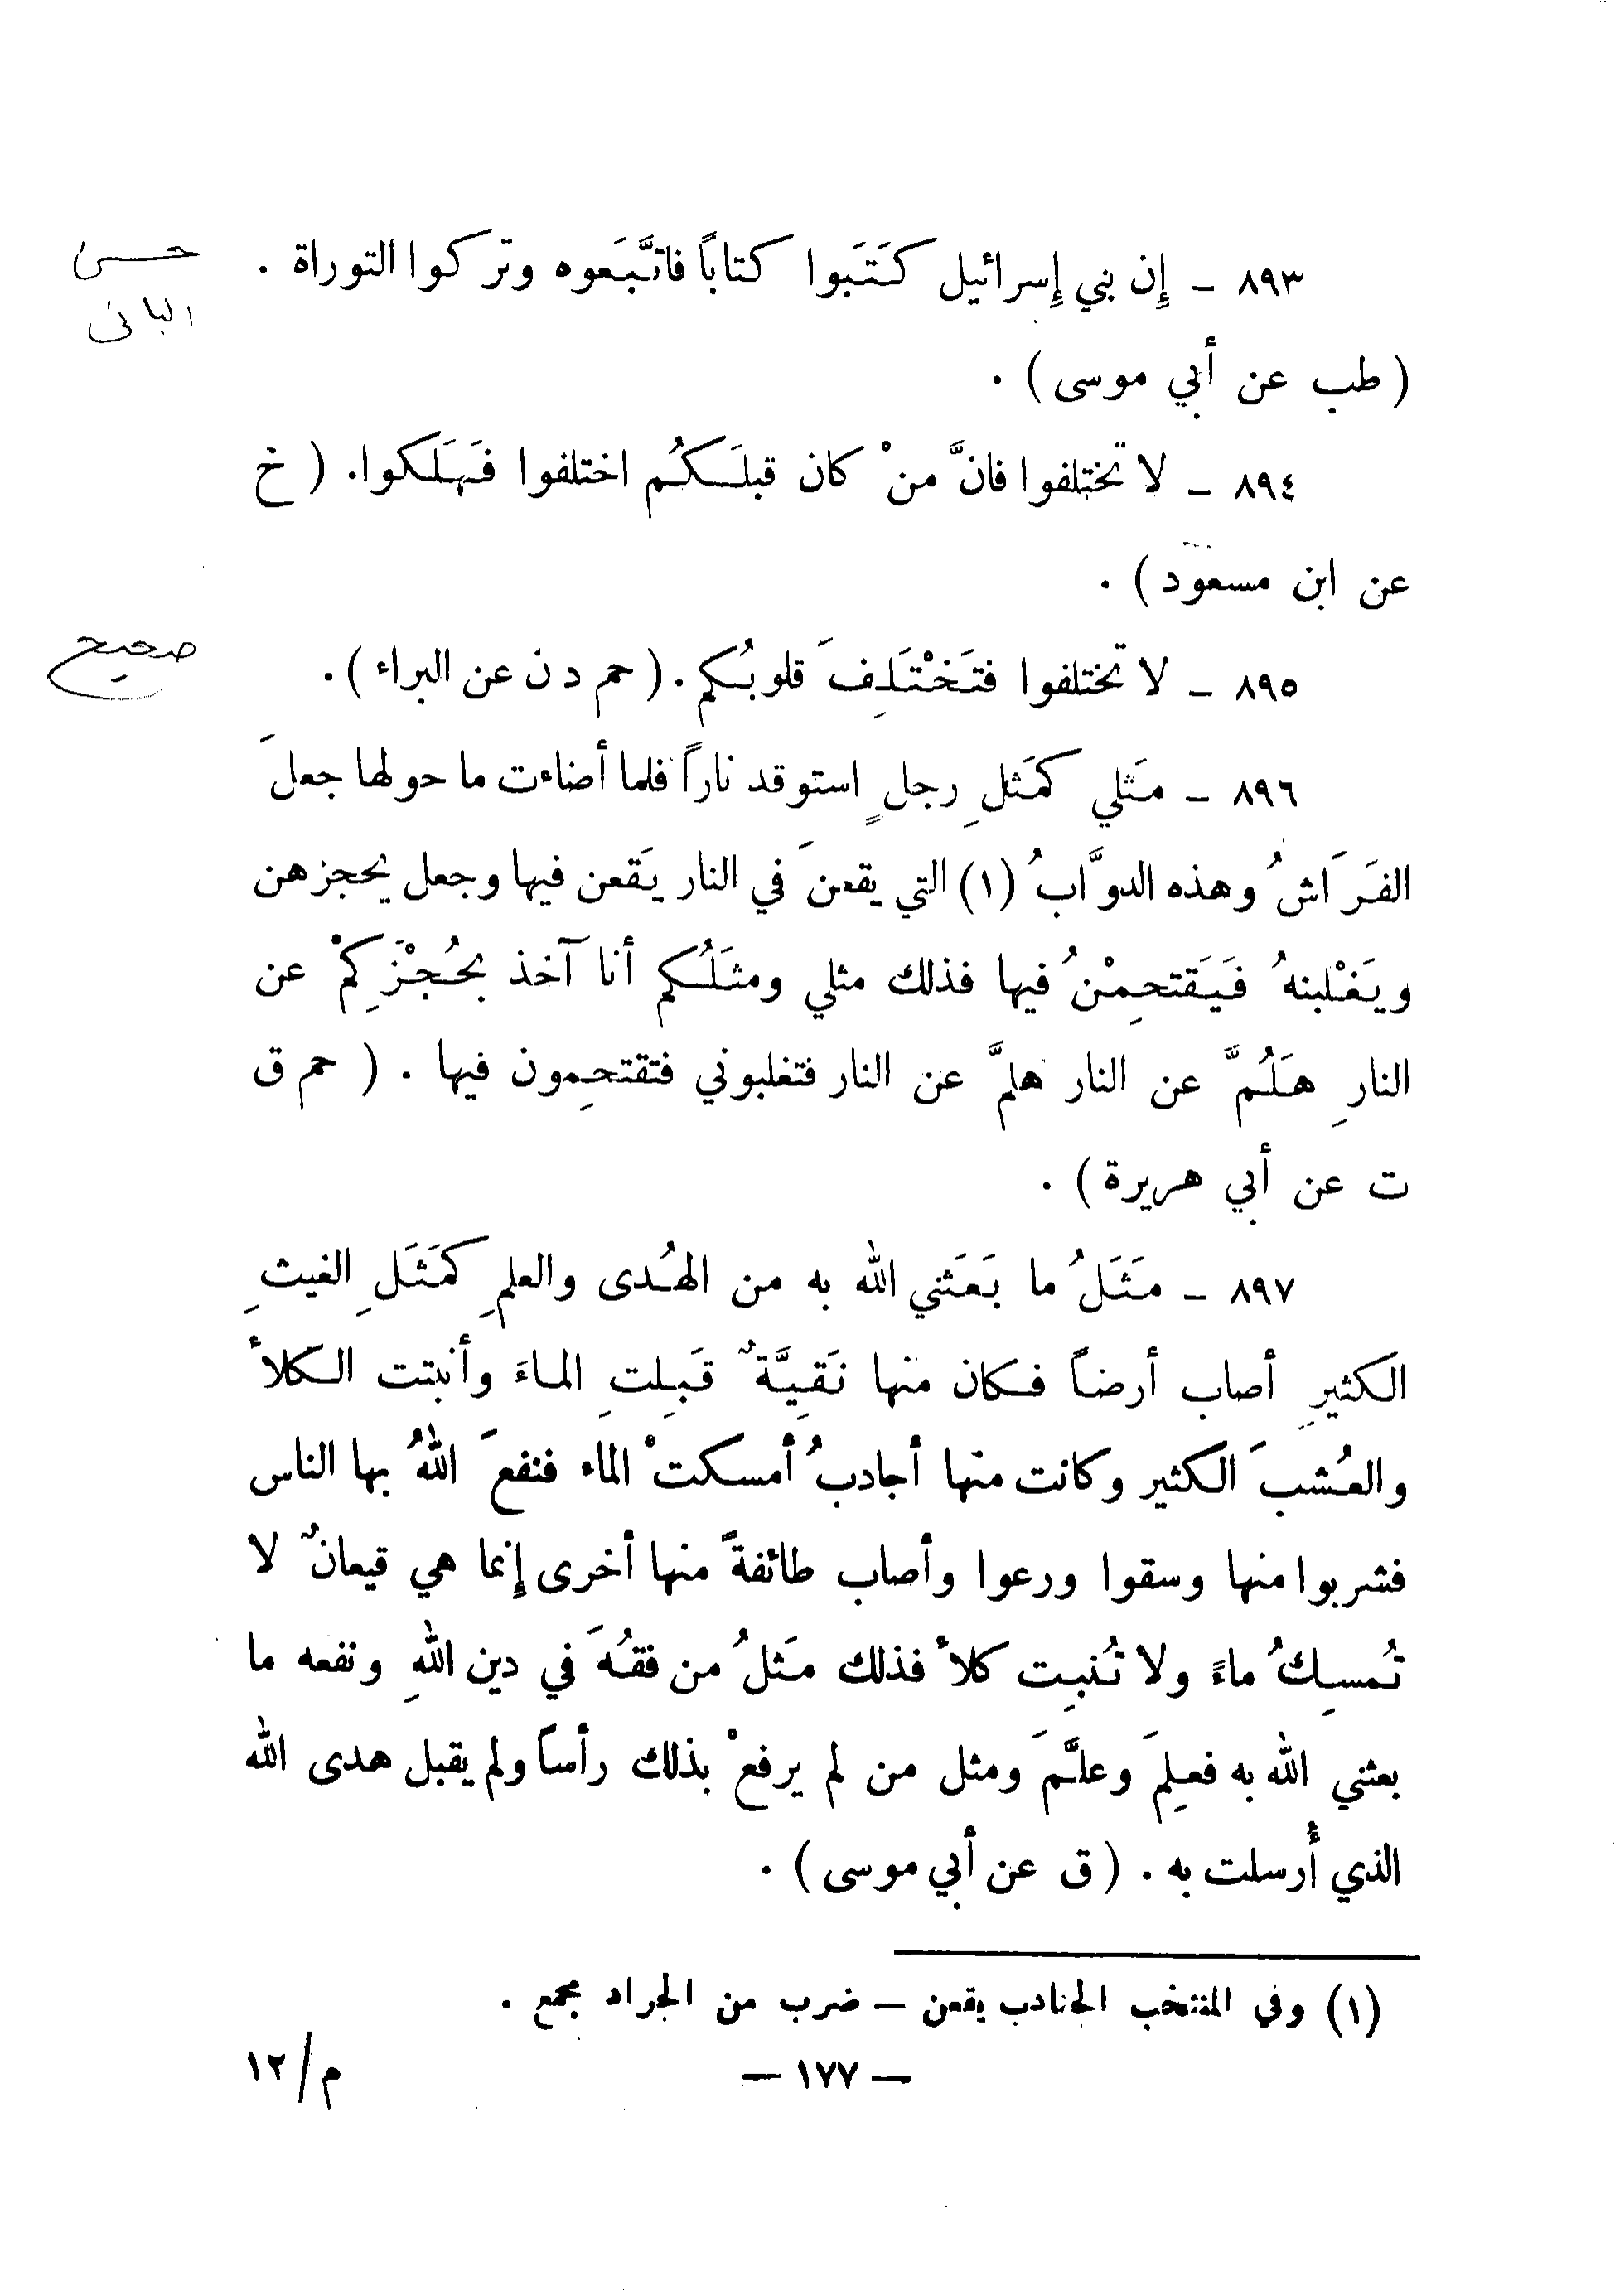 ٨٩٣ – إِن بني إِسرائيل كَتَبوا كتاباً فاتَّبَعوه وتركوا التوراة .
حسن
البانى
( طب عن أبي موسى ) .
٨٩٤ – لا تختلفوا فانَّ منْ كان قبلَكُم اختلفوا فَهَلَكوا. ( خ
عن ابن مسعود ) .
٨٩٥ – لا تختلفوا فتَخْتَلِفَ قلوبُكم . ( حم د ن عن البراء ) .
صحيح
٨٩٦ – مَثلي كمَثلِ رجلٍ استوقد ناراً فلما أضاءت ما حولها جعلَ
الفَرَاشُ وهذه الدوَّابُ (١) التي يقعنَ في النار يَقعن فيها وجعل يحجزهن
ويَغْلبنهُ فَيَقتحِمْنُ فيها فذلك مثلي ومثَلُكم أنا آخذ بحُجْزَكِمْ عن
النارِ هَلُمَّ عن النار هلمَّ عن النار فتغلبوني فتقتحِمون فيها . ( حم ق
ت عن أبي هريرة ) .
٨٩٧ – مَثَلُ ما بَعَثني الله به من الهُدى والعلمِ كمَثَلِ الغيثِ
الكثيرِ أصاب أرضاً فكان منها نَقِيَّةٌ قَبِلتِ الماءَ وأنبتت الكلأ
والعُشبَ الكثير وكانت منها أجادبُ أمسكتْ الماء فنفعَ اللهُ بها الناس
فشربوا منها وسقوا ورعوا وأصاب طائفةً منها أخرى إِنما هي قيعانٌ لا
تُمسِكُ ماءً ولا تُنبِت كلأ فذلك مَثلُ من فقُهَ في دين اللهِ ونفعه ما
بعثني الله به فعلِمَ وعلَّمَ ومثل من لم يرفعْ بذلك رأساً ولم يقبل هدى الله
الذي أُرسلت به . ( ق عن أبي موسى ) .
(١) وفي المنتخب الجنادب يقعن – ضرب من الجراد مجمع .
– ١٧٧ –
م/١٢